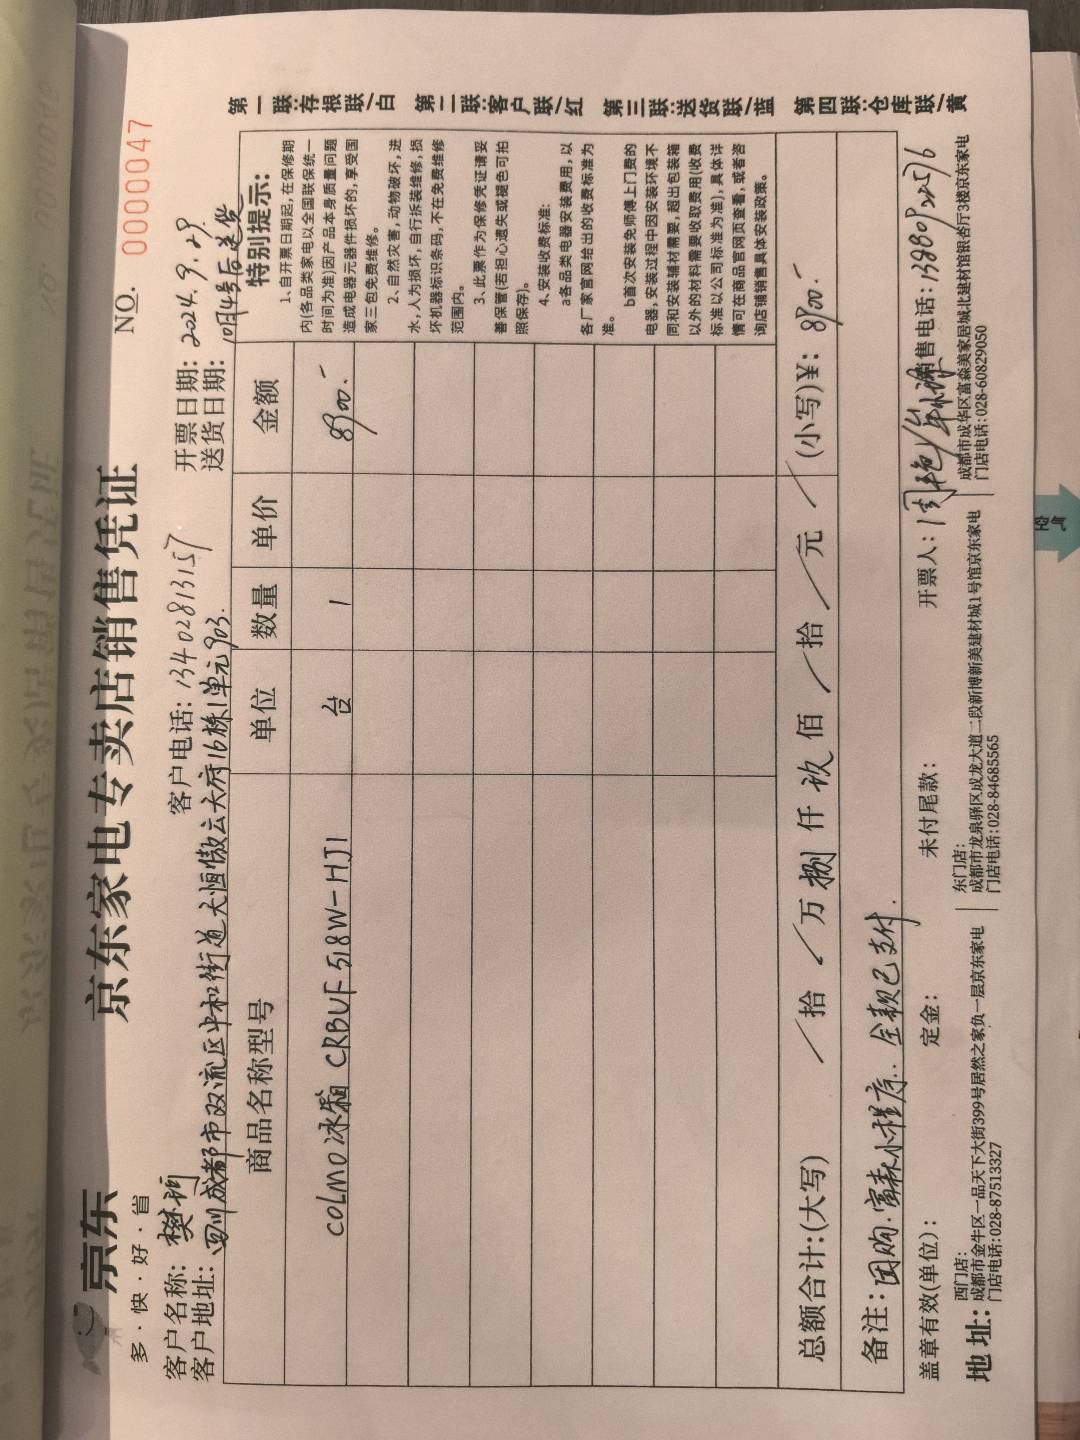 京东
多·快·好·省
京东家电专卖店销售凭证
NO. 0000047
客户名称: 樊珂
客户电话: 13402813157
开票日期: 2024.9.29
客户地址: 四川成都市双流区中和街道大恒傲云天府16栋1单元903.
送货日期: 10月4号后送货
商品名称型号 单位 数量 单价 金额
COLMO冰箱 CRBUF518W-HJ1 台 1 8900.-
特别提示:
1、自开票日期起,在保修期
内(各品类家电以全国联保统一
时间为准)因产品本身质量问题
造成电器元器件损坏的,享受国
家三包免费维修。
2、自然灾害,动物破坏,进
水,人为损坏,自行拆装维修,损
坏机器标识条码,不在免费维修
范围内。
3、此票作为保修凭证请妥
善保管(若担心遗失或褪色可拍
照保存)。
4、安装收费标准:
a各品类电器安装费用,以
各厂家官网给出的收费标准为
准。
b首次安装免师傅上门费的
电器,安装过程中因安装环境不
同和安装辅材需要,超出包装箱
以外的材料需要收取费用(收费
标准以公司标准为准),具体详
情可在商品官网页查看,或者咨
询店铺销售具体安装政策。
总额合计:(大写) / 拾 / 万 捌 仟 玖 佰 / 拾 / 元 / (小写)¥: 8900.-
备注: 团购.富森小程序. 全款已支付.
盖章有效(单位): 定金: 未付尾款: 开票人: 周艳/ 销售电话: 13980922576
地址:
西门店:
成都市金牛区一品天下大街399号居然之家负一层京东家电
门店电话:028-87513327
东门店:
成都市龙泉驿区成龙大道二段新博新美建材城1号馆京东家电
门店电话:028-84685565
成都市成华区富森美家居城北建材馆银杏厅3楼京东家电
门店电话:028-60829050
第一联:存根联/白 第二联:客户联/红 第三联:送货联/蓝 第四联:仓库联/黄